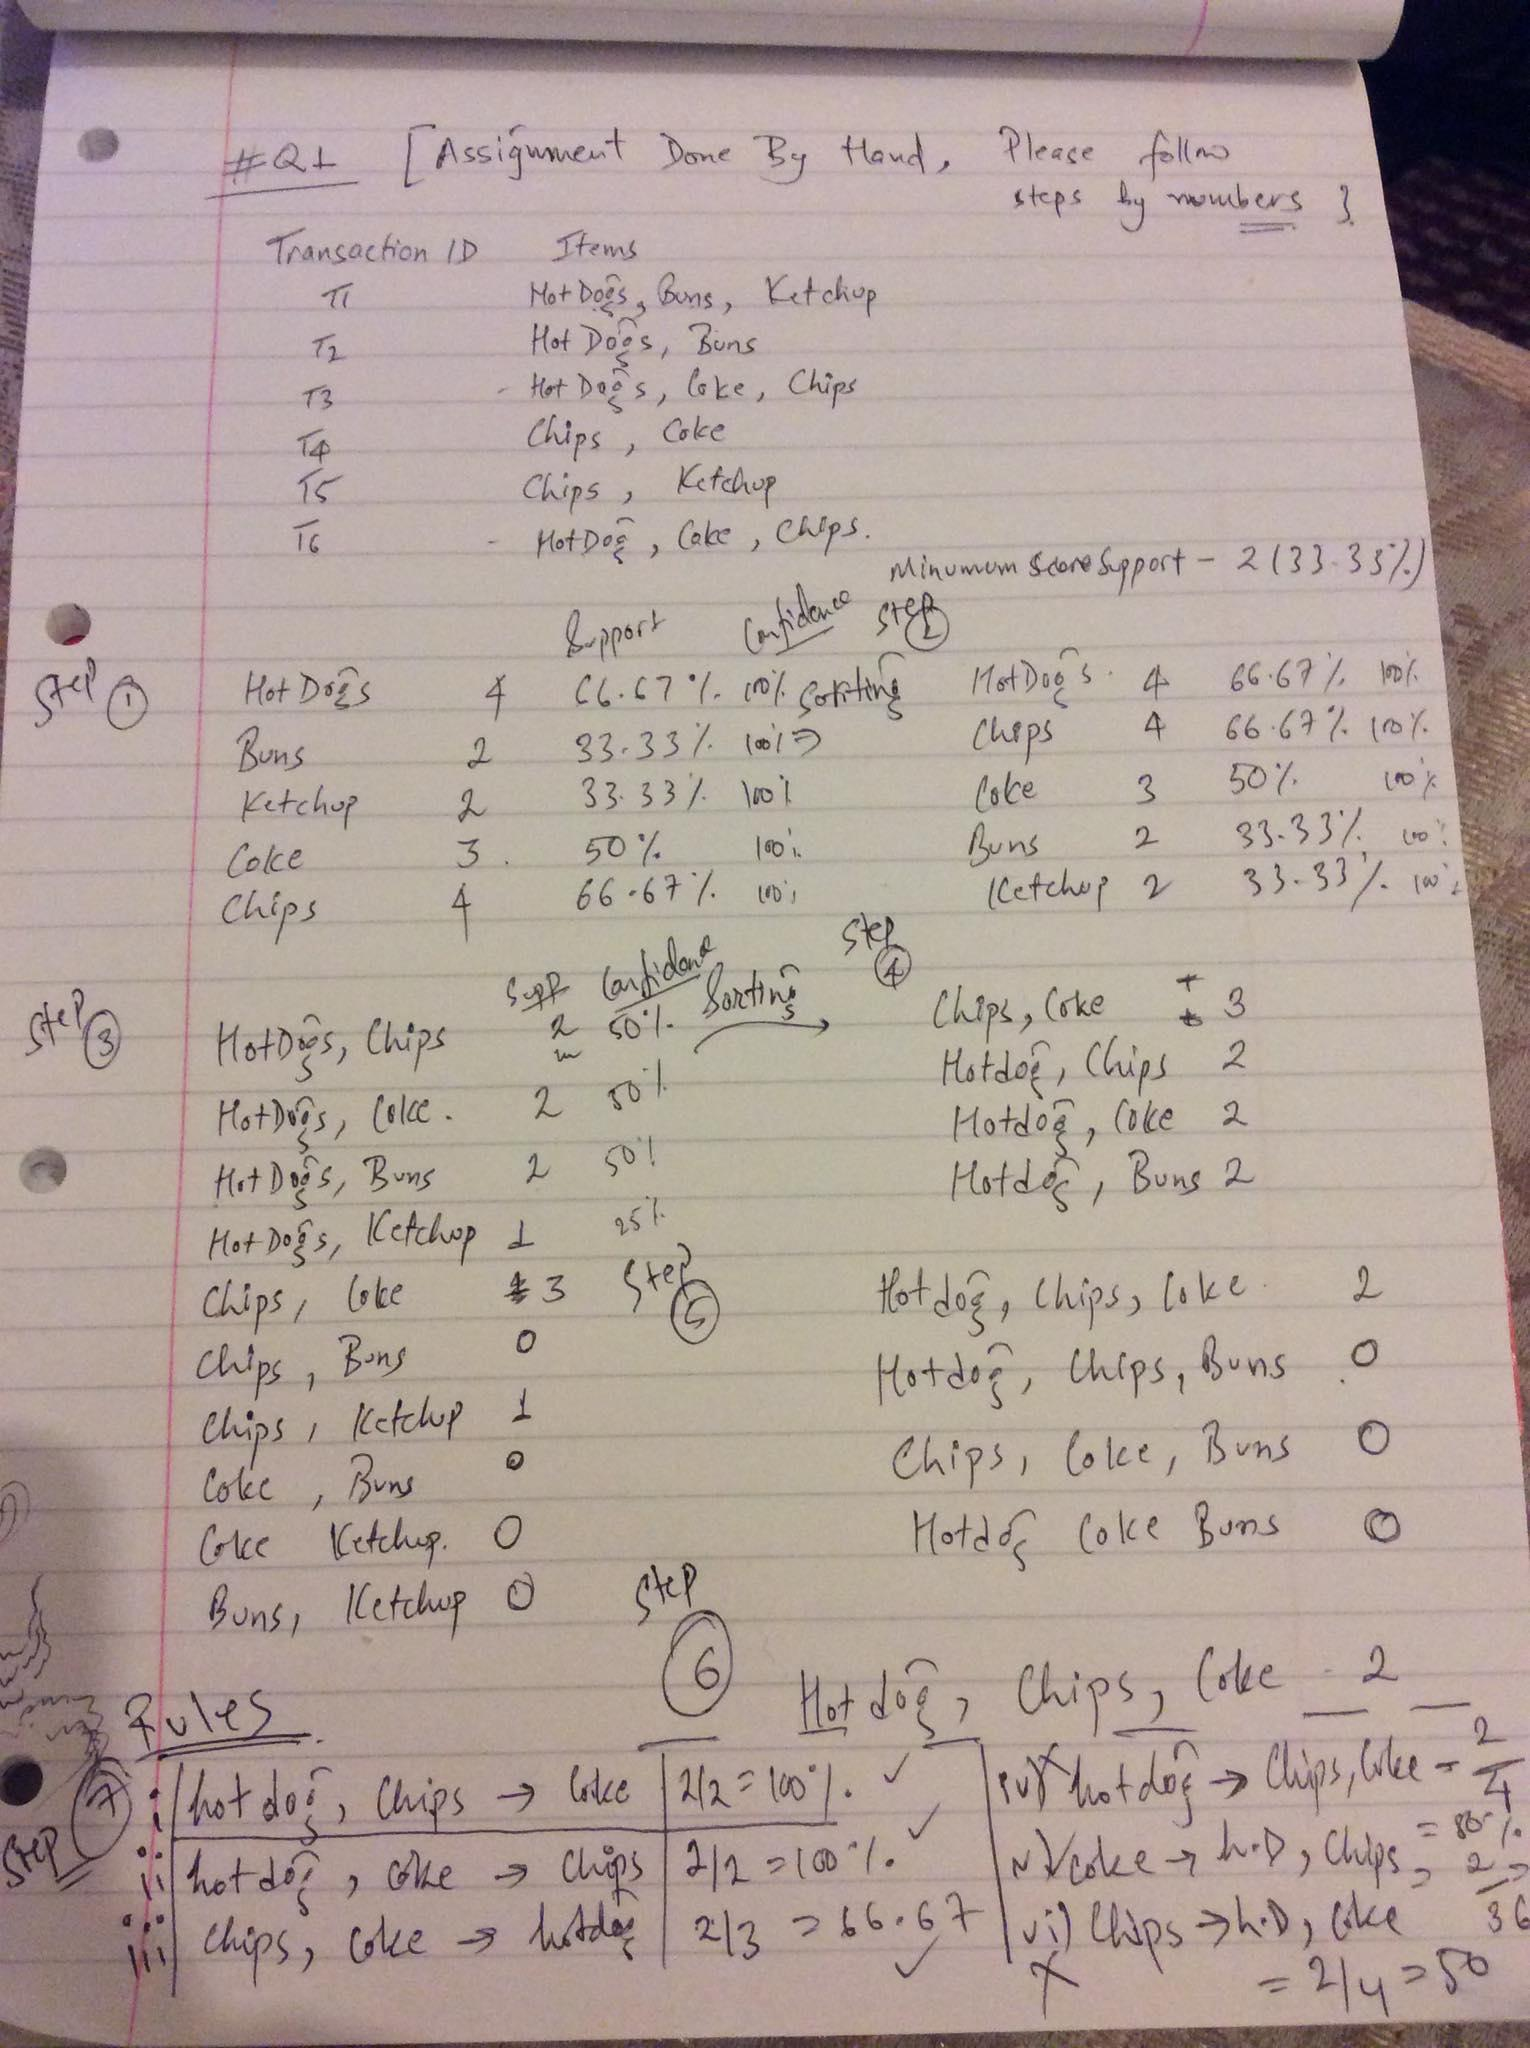 #Q1 [Assignment Done By Hand, Please follow
steps by numbers }
Transaction ID Items
T1 Hot Dogs, Buns, Ketchup
T2 Hot Dogs, Buns
T3 - Hot Dogs, Coke, Chips
T4 Chips, Coke
T5 Chips, Ketchup
T6 - HotDog, Coke, Chips.
Minumum Score Support - 2 (33.33%)
Support Confidence
Step ①
HotDogs 4 66.67% 100%
Buns 2 33.33% 100%
Ketchup 2 33.33% 100%
Coke 3. 50% 100%
Chips 4 66.67% 100%
Sorting ⇒
Step ②
HotDogs. 4 66.67% 100%
Chips 4 66.67% 100%
Coke 3 50% 100%
Buns 2 33.33% 100%
Ketchup 2 33.33% 100%
Step ③
Supp Confidence
HotDogs, Chips 2 50%
HotDogs, Coke. 2 50%
Hot Dogs, Buns 2 50%
Hot Dogs, Ketchup 1 25%
Chips, Coke 3
Chips, Buns 0
Chips, Ketchup 1
Coke, Buns 0
Coke Ketchup. 0
Buns, Ketchup 0
Sorting →
Step ④
Chips, Coke 3
Hotdog, Chips 2
Hotdog, Coke 2
Hotdog, Buns 2
Step ⑤
Hotdog, Chips, Coke. 2
Hotdog, Chips, Buns 0
Chips, Coke, Buns 0
Hotdog Coke Buns 0
Step ⑥
Hotdog, Chips, Coke - 2
Rules
Step ⑦
i hot dog, Chips → Coke 2/2 = 100%. ✓
ii hot dog, coke → Chips 2/2 = 100%. ✓
iii Chips, Coke → hotdog 2/3 = 66.67 ✓
iv) X hotdog → Chips, Coke = 2/4
v) coke → h.D, Chips
vi) Chips → h.D, Coke
X = 2/4 = 50